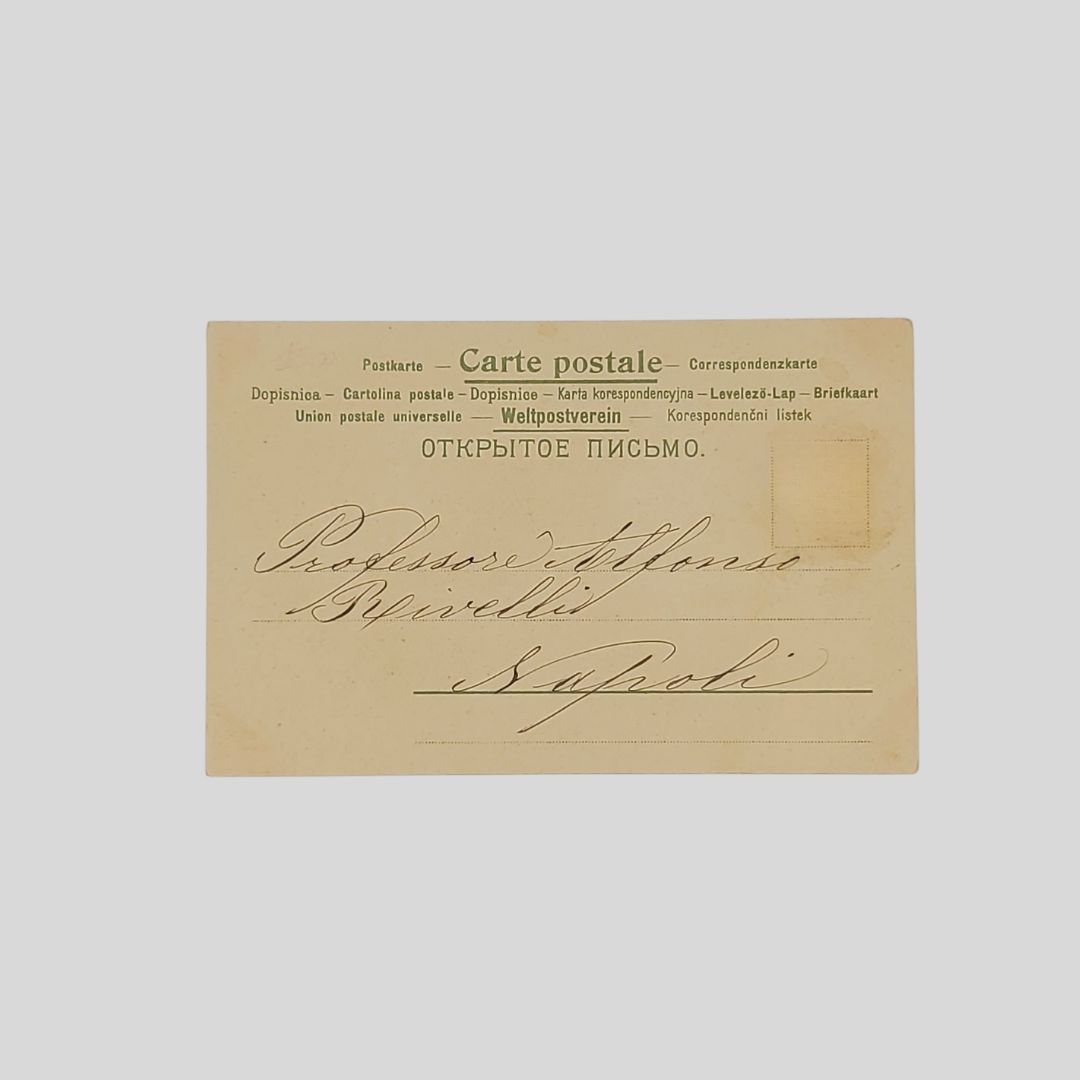 Postkarte — Carte postale — Correspondenzkarte
Dopisnica — Cartolina postale — Dopisnice — Karta korespondencyjna — Levelező-Lap — Briefkaart
Union postale universelle — Weltpostverein — Korespondenční lístek
ОТКРЫТОЕ ПИСЬМО.
Professore Alfonso
Rivelli
Napoli